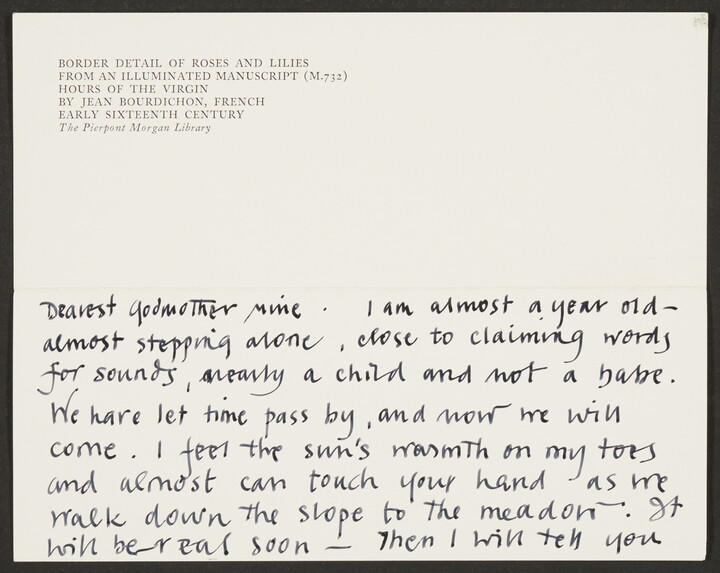 BORDER DETAIL OF ROSES AND LILIES
FROM AN ILLUMINATED MANUSCRIPT (M.732)
HOURS OF THE VIRGIN
BY JEAN BOURDICHON, FRENCH
EARLY SIXTEENTH CENTURY
The Pierpont Morgan Library
Dearest Godmother mine. I am almost a year old—
almost stepping alone, close to claiming words
for sounds, nearly a child and not a babe.
We have let time pass by, and now we will
come. I feel the sun's warmth on my toes
and almost can touch your hand as we
walk down the slope to the meadow. It
will be real soon — Then I will tell you